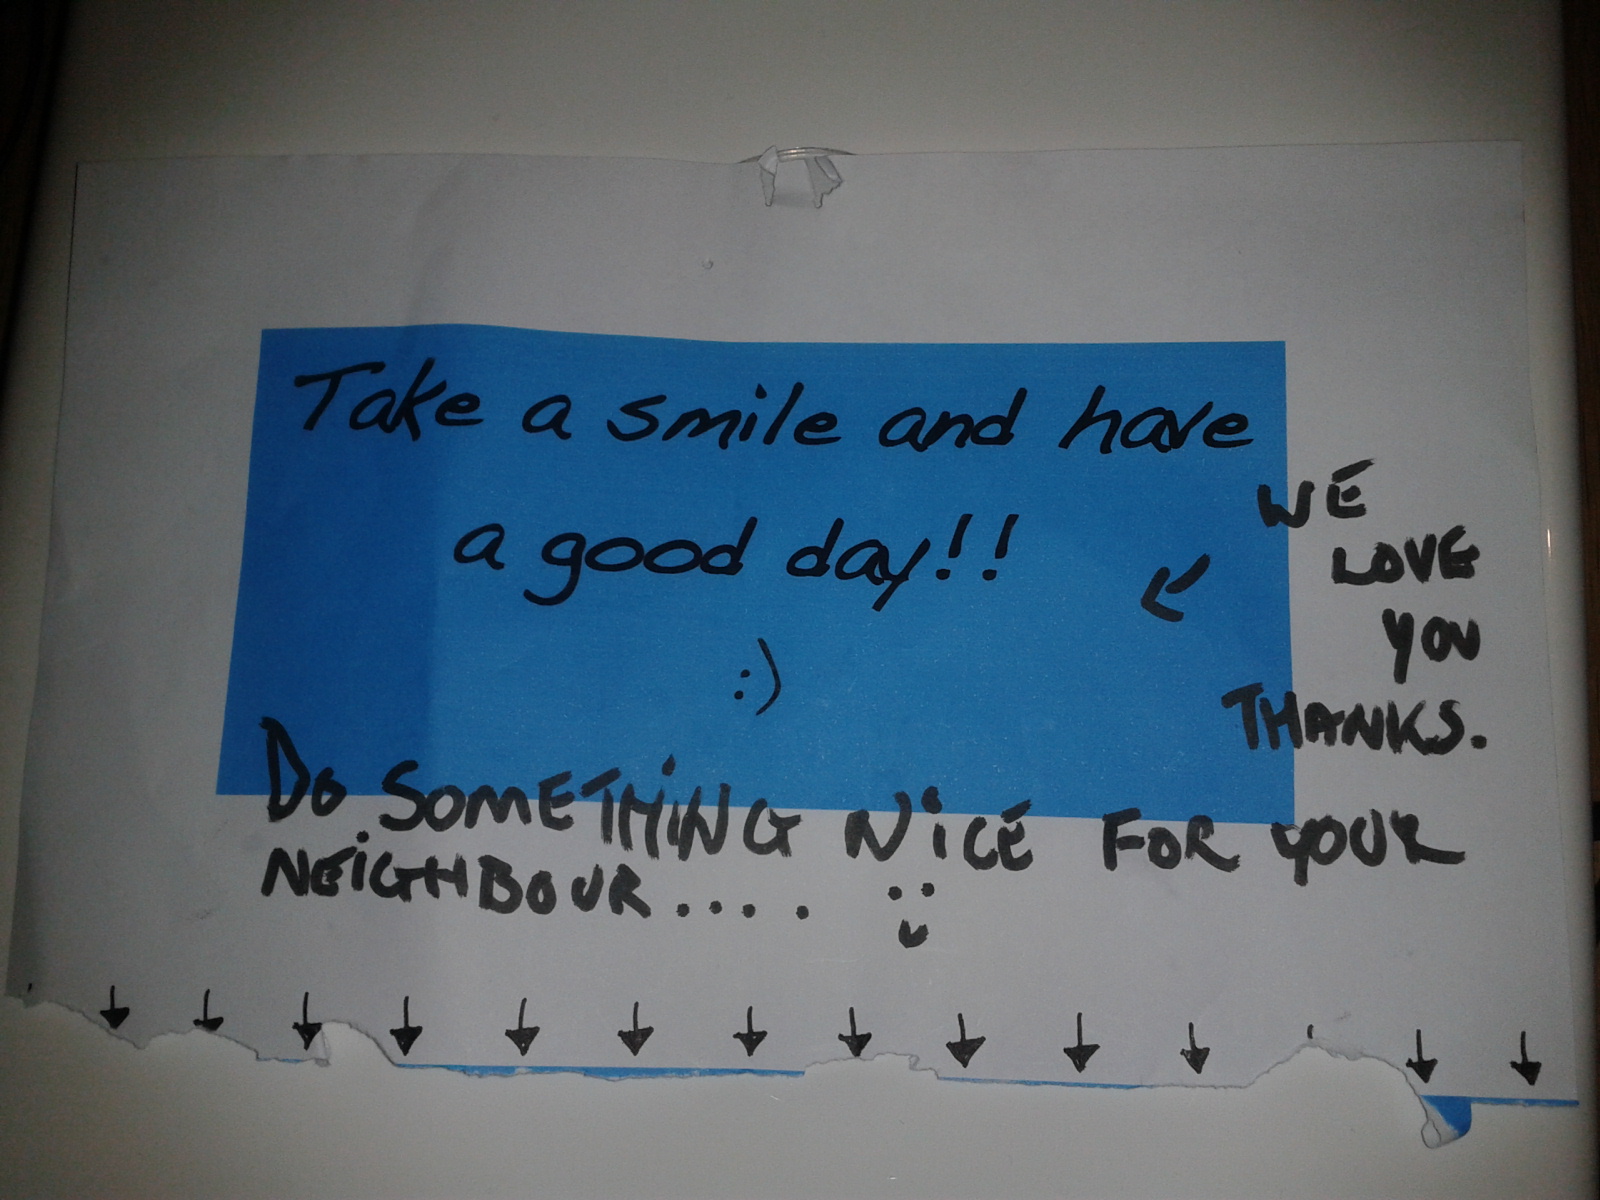 Take a smile and have
a good day!!
:)
WE
LOVE
YOU
THANKS.
DO SOMETHING NICE FOR YOUR
NEIGHBOUR....